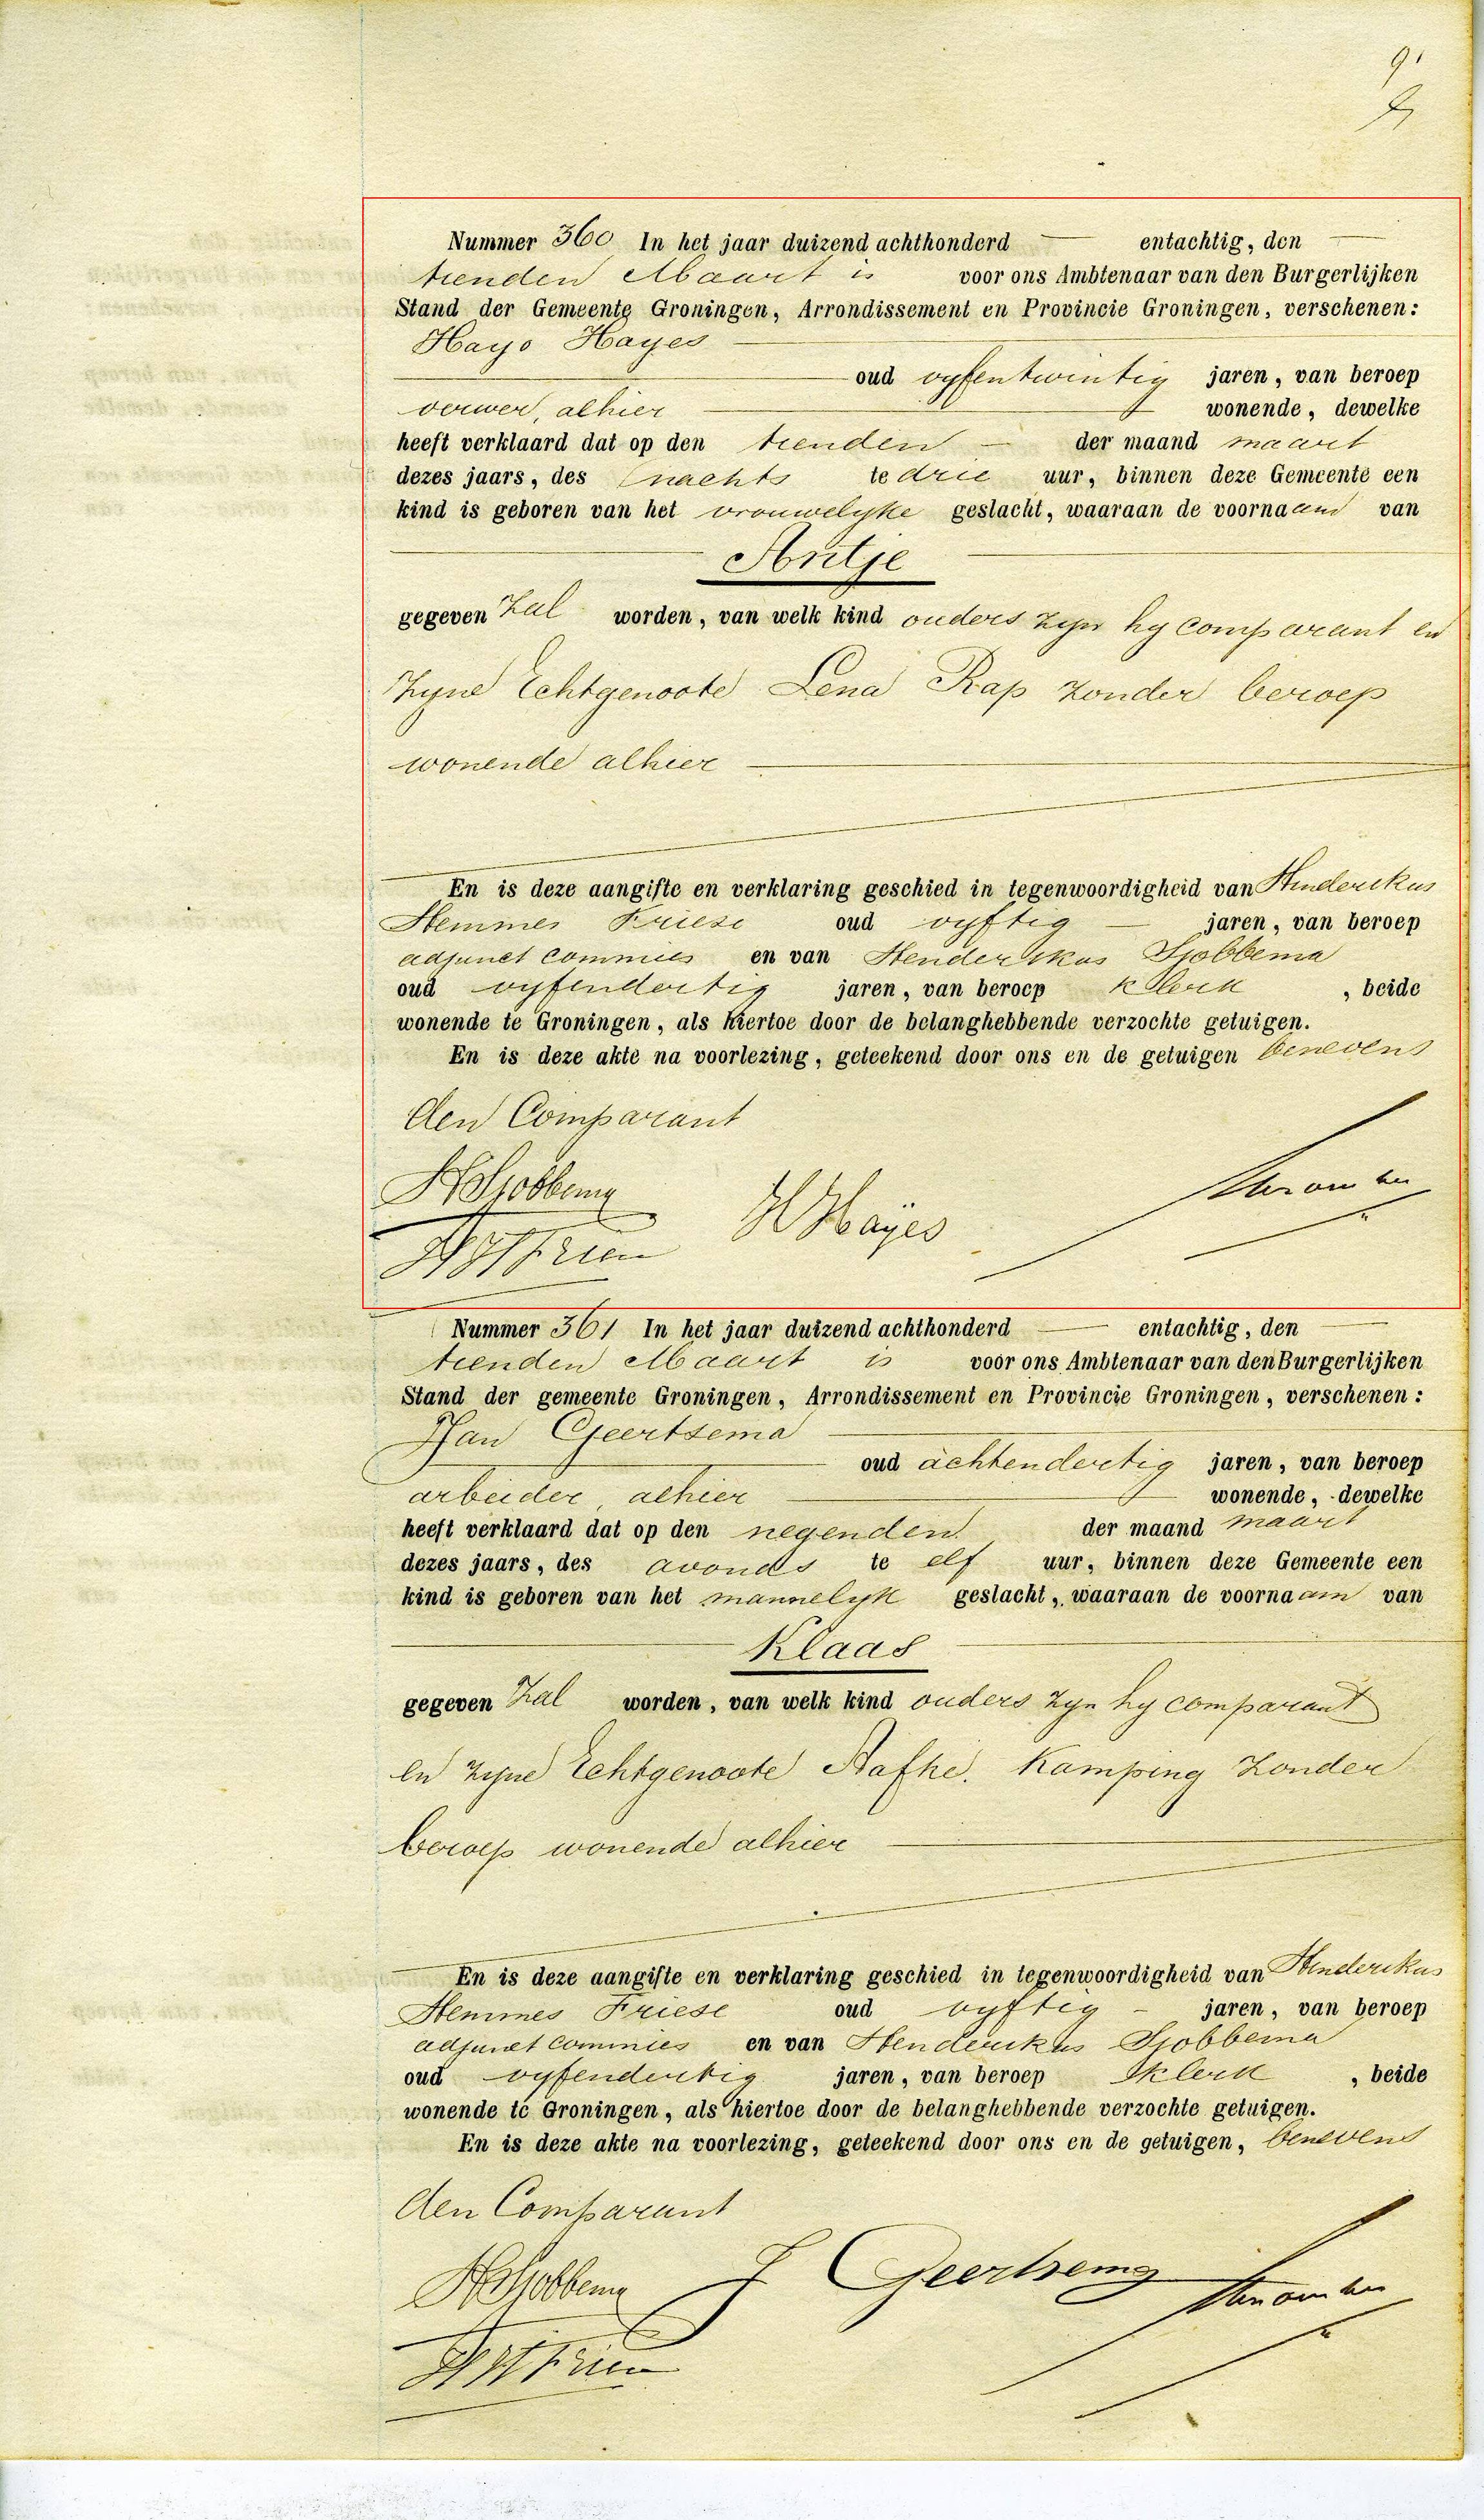 91
Nummer 360 In het jaar duizend achthonderd — entachtig, den —
tienden Maart is voor ons Ambtenaar van den Burgerlijken
Stand der Gemeente Groningen, Arrondissement en Provincie Groningen, verschenen:
Hayo Hayes
oud vyfentwintig jaren, van beroep
verwer, alhier wonende, dewelke
heeft verklaard dat op den tienden — der maand maart
dezes jaars, des nachts te drie uur, binnen deze Gemeente een
kind is geboren van het vrouwelyke geslacht, waaraan de voornaam van
Antje
gegeven zal worden, van welk kind ouders zyn hy comparant en
zyne Echtgenoote Lena Rap zonder beroep
wonende alhier
En is deze aangifte en verklaring geschied in tegenwoordigheid van Hinderikus
Hemmes Friese oud vyftig — jaren, van beroep
adjunct commies en van Henderikus Sjobbema
oud vyfendertig jaren, van beroep klerk, beide
wonende te Groningen, als hiertoe door de belanghebbende verzochte getuigen.
En is deze akte na voorlezing, geteekend door ons en de getuigen benevens
den Comparant
HSjobbema
HHayes
HHFriese
Nummer 361 In het jaar duizend achthonderd — entachtig, den —
tienden Maart is voor ons Ambtenaar van den Burgerlijken
Stand der gemeente Groningen, Arrondissement en Provincie Groningen, verschenen:
Jan Geertsema
oud achtendertig jaren, van beroep
arbeider, alhier wonende, dewelke
heeft verklaard dat op den negenden der maand maart
dezes jaars, des avonds te elf uur, binnen deze Gemeente een
kind is geboren van het mannelyk geslacht, waaraan de voornaam van
Klaas
gegeven zal worden, van welk kind ouders zyn hy comparant
en zyne Echtgenoote Aafke Kamping zonder
beroep wonende alhier
En is deze aangifte en verklaring geschied in tegenwoordigheid van Hinderikus
Hemmes Friese oud vyftig — jaren, van beroep
adjunct commies en van Henderikus Sjobbema
oud vyfendertig jaren, van beroep klerk, beide
wonende te Groningen, als hiertoe door de belanghebbende verzochte getuigen.
En is deze akte na voorlezing, geteekend door ons en de getuigen, benevens
den Comparant
HSjobbema
J Geertsema
HHFriese